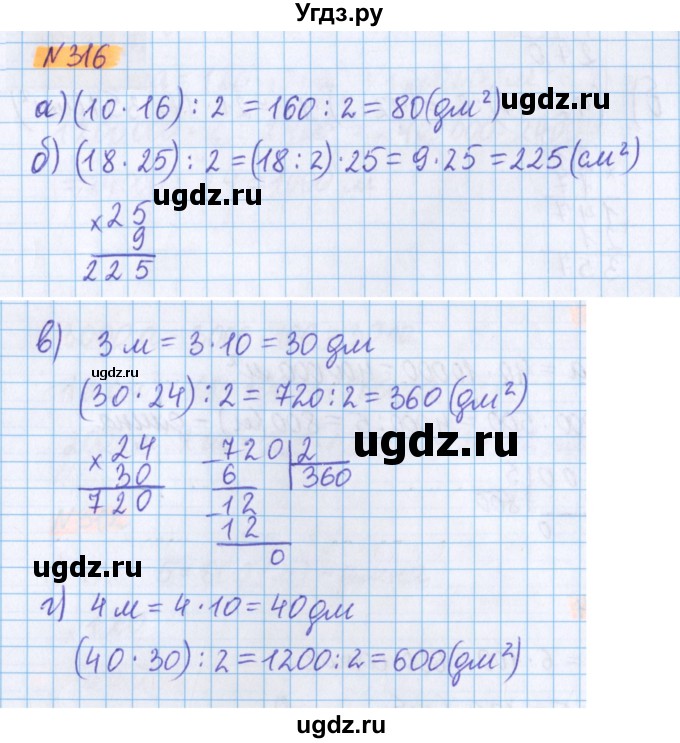 Угдз.ру
N 316
а) (10 · 16) : 2 = 160 : 2 = 80 (дм²)
ugdz.ru
б) (18 · 25) : 2 = (18 : 2) · 25 = 9 · 25 = 225 (см²)
ugdz.ru
× 25
9
225
в) 3 м = 3 · 10 = 30 дм
ugdz.ru
(30 · 24) : 2 = 720 : 2 = 360 (дм²)
ugdz.ru
× 24
30
720
− 720 | 2
6 360
− 12
12
0
ugdz.ru
г) 4 м = 4 · 10 = 40 дм
(40 · 30) : 2 = 1200 : 2 = 600 (дм²)
ugdz.ru
ugdz.ru